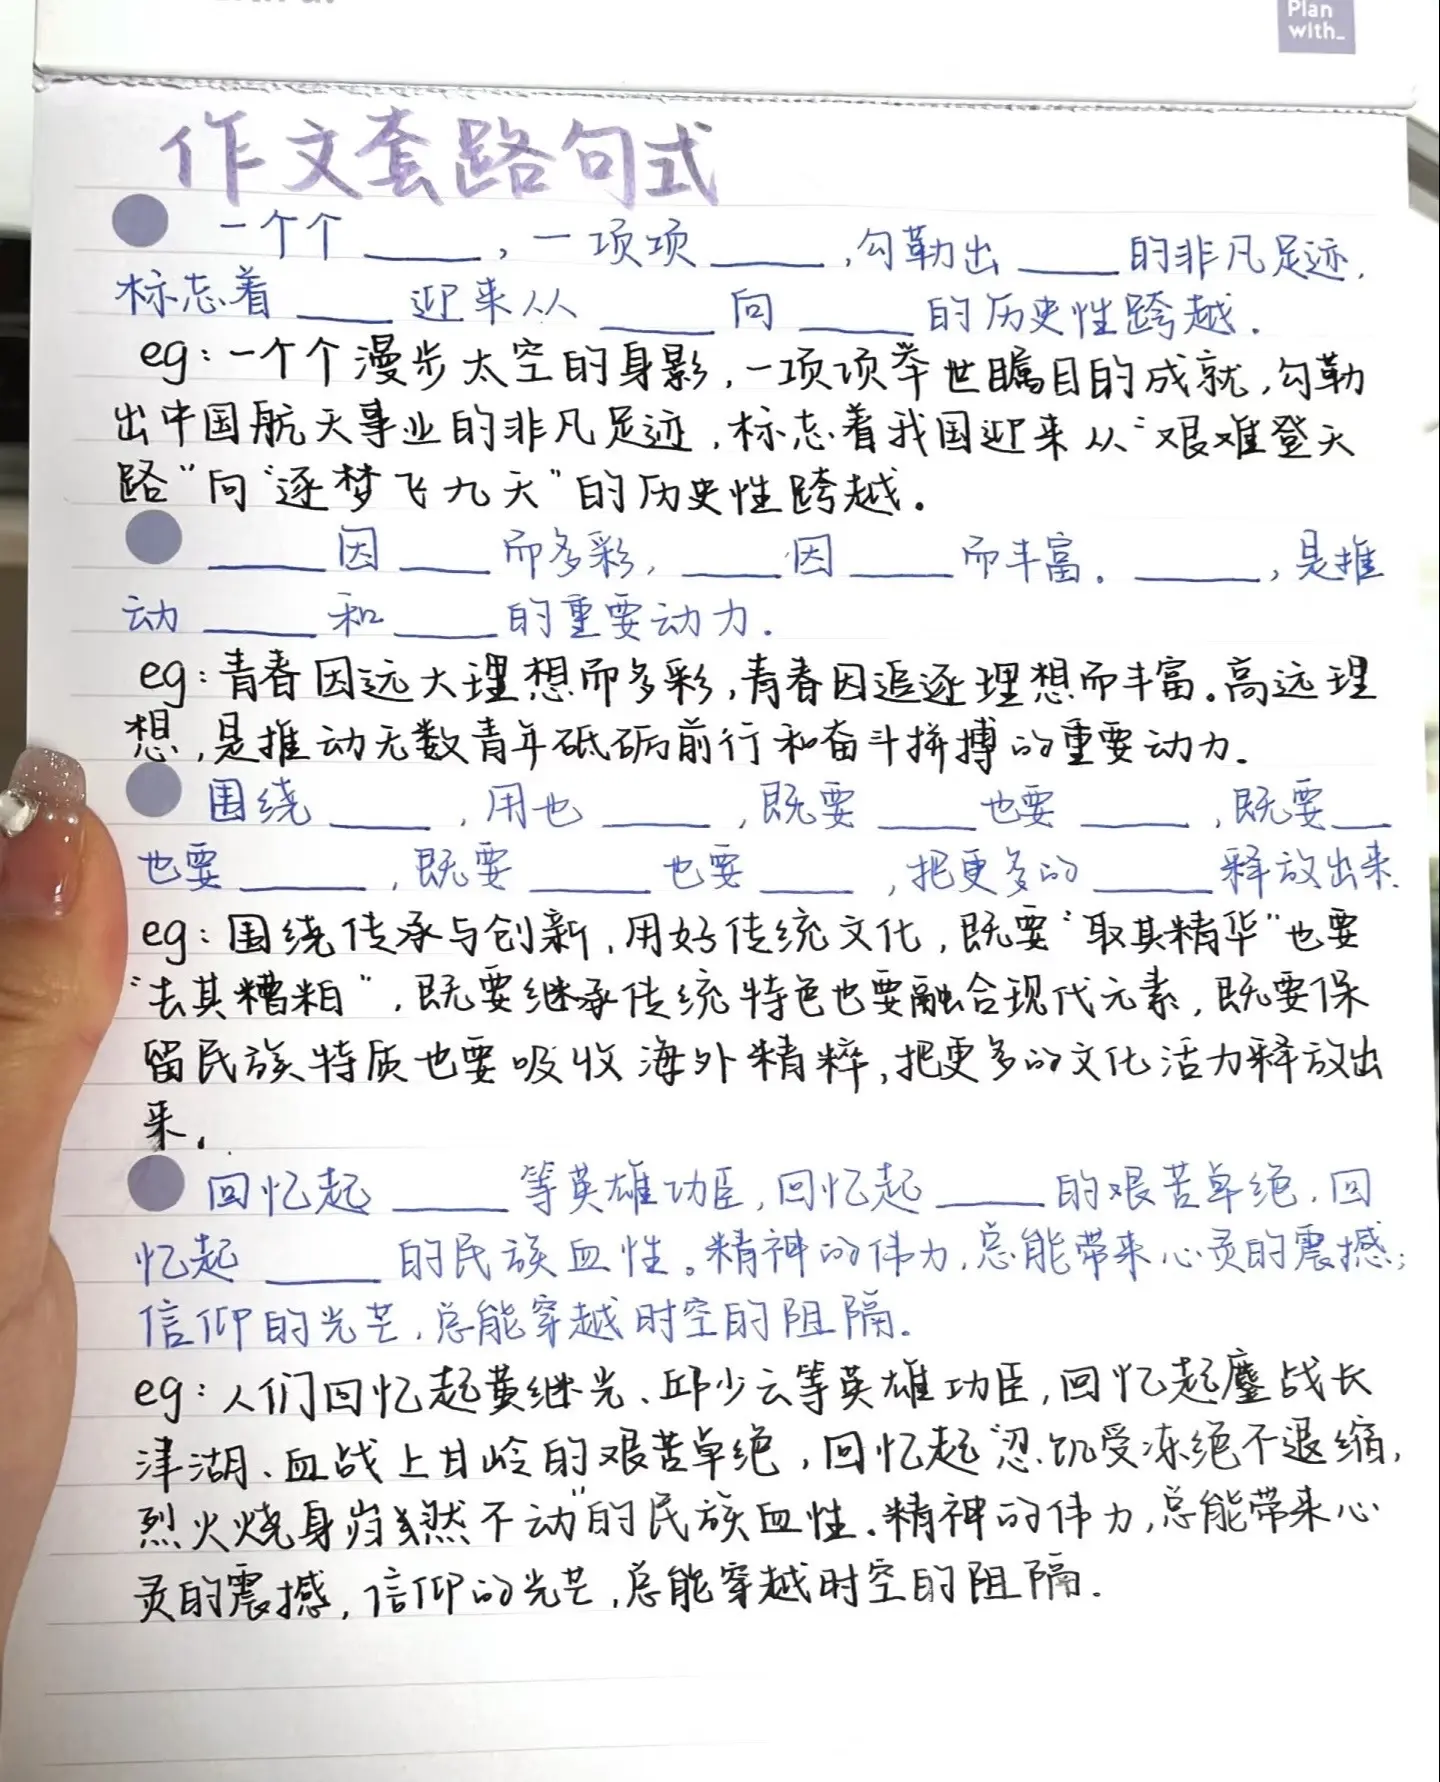 Plan
with_
作文套路句式
一个个____,一项项____,勾勒出____的非凡足迹,
标志着____迎来从____向____的历史性跨越.
eg:一个个漫步太空的身影,一项项举世瞩目的成就,勾勒
出中国航天事业的非凡足迹,标志着我国迎来从“艰难登天
路”向“逐梦飞九天”的历史性跨越.
____因____而多彩,____因____而丰富.____,是推
动____和____的重要动力.
eg:青春因远大理想而多彩,青春因追逐理想而丰富。高远理
想,是推动无数青年砥砺前行和奋斗拼搏的重要动力.
围绕____,用也____,既要____也要____,既要__
也要____,既要____也要____,把更多的____释放出来.
eg:围绕传承与创新,用好传统文化,既要“取其精华”也要
“去其糟粕”,既要继承传统特色也要融合现代元素,既要保
留民族特质也要吸收海外精粹,把更多的文化活力释放出
来.
回忆起____等英雄功臣,回忆起____的艰苦卓绝,回
忆起____的民族血性。精神的伟力,总能带来心灵的震撼;
信仰的光芒,总能穿越时空的阻隔.
eg:人们回忆起黄继光、邱少云等英雄功臣,回忆起鏖战长
津湖、血战上甘岭的艰苦卓绝,回忆起“忍饥受冻绝不退缩,
烈火烧身岿然不动”的民族血性.精神的伟力,总能带来心
灵的震撼,信仰的光芒,总能穿越时空的阻隔.